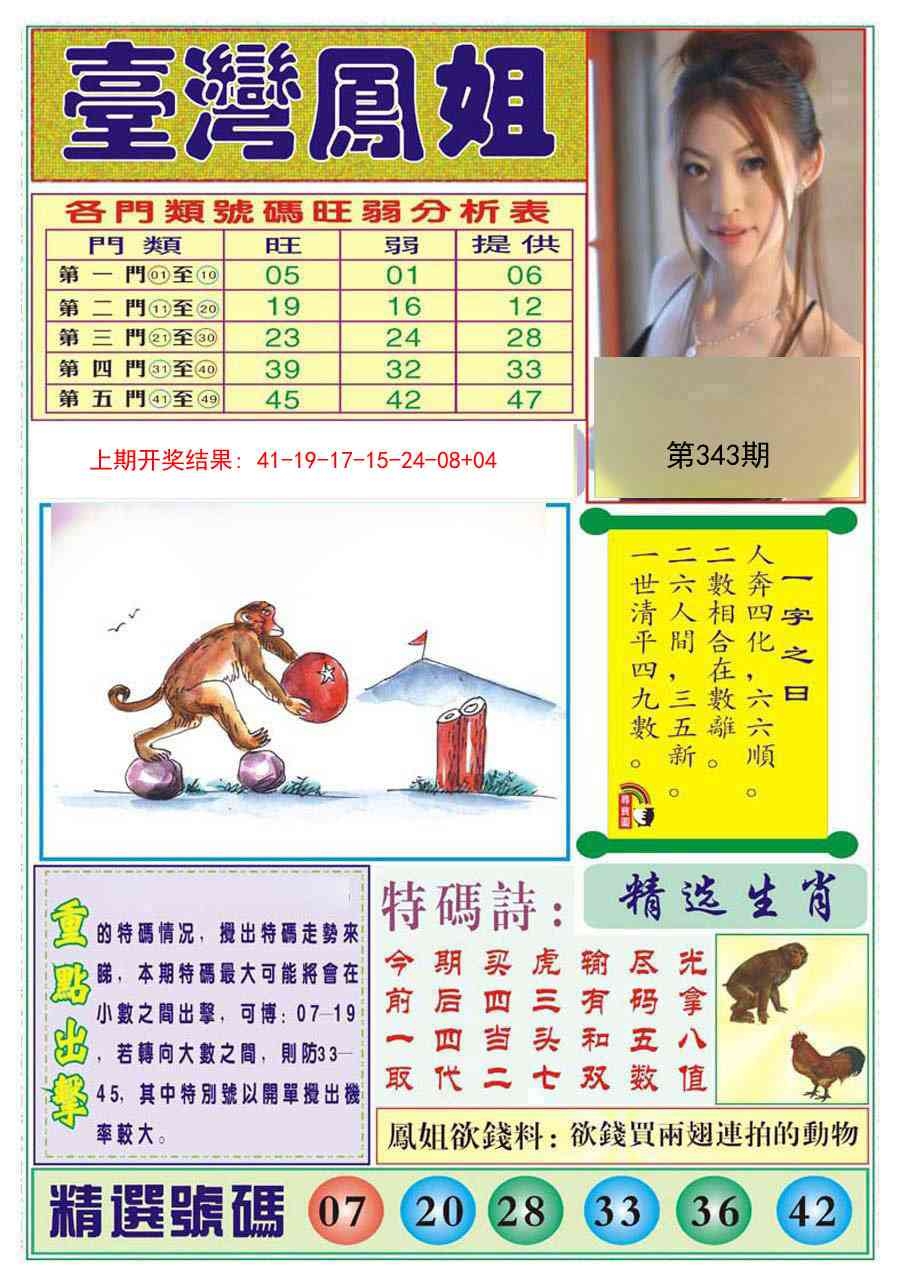 臺灣鳳姐
各門類號碼旺弱分析表
門類 旺 弱 提供
第一門01至10 05 01 06
第二門11至20 19 16 12
第三門21至30 23 24 28
第四門31至40 39 32 33
第五門41至49 45 42 47
上期开奖结果：41-19-17-15-24-08+04
第343期
一字之曰
人奔四化，六六順。
二數相合在數離。
二六人間，三五新。
一世清平四九數。
尋寶圖
重點出擊
的特碼情况，攪出特碼走勢來
睇，本期特碼最大可能將會在
小數之間出擊，可博：07—19
，若轉向大數之間，則防33—
45，其中特別號以開單攪出機
率較大。
特碼詩：
今期买虎输尽光
前后四三有码拿
一四当头和五八
取代二七双数值
精选生肖
鳳姐欲錢料：欲錢買兩翅連拍的動物
精選號碼 07 20 28 33 36 42